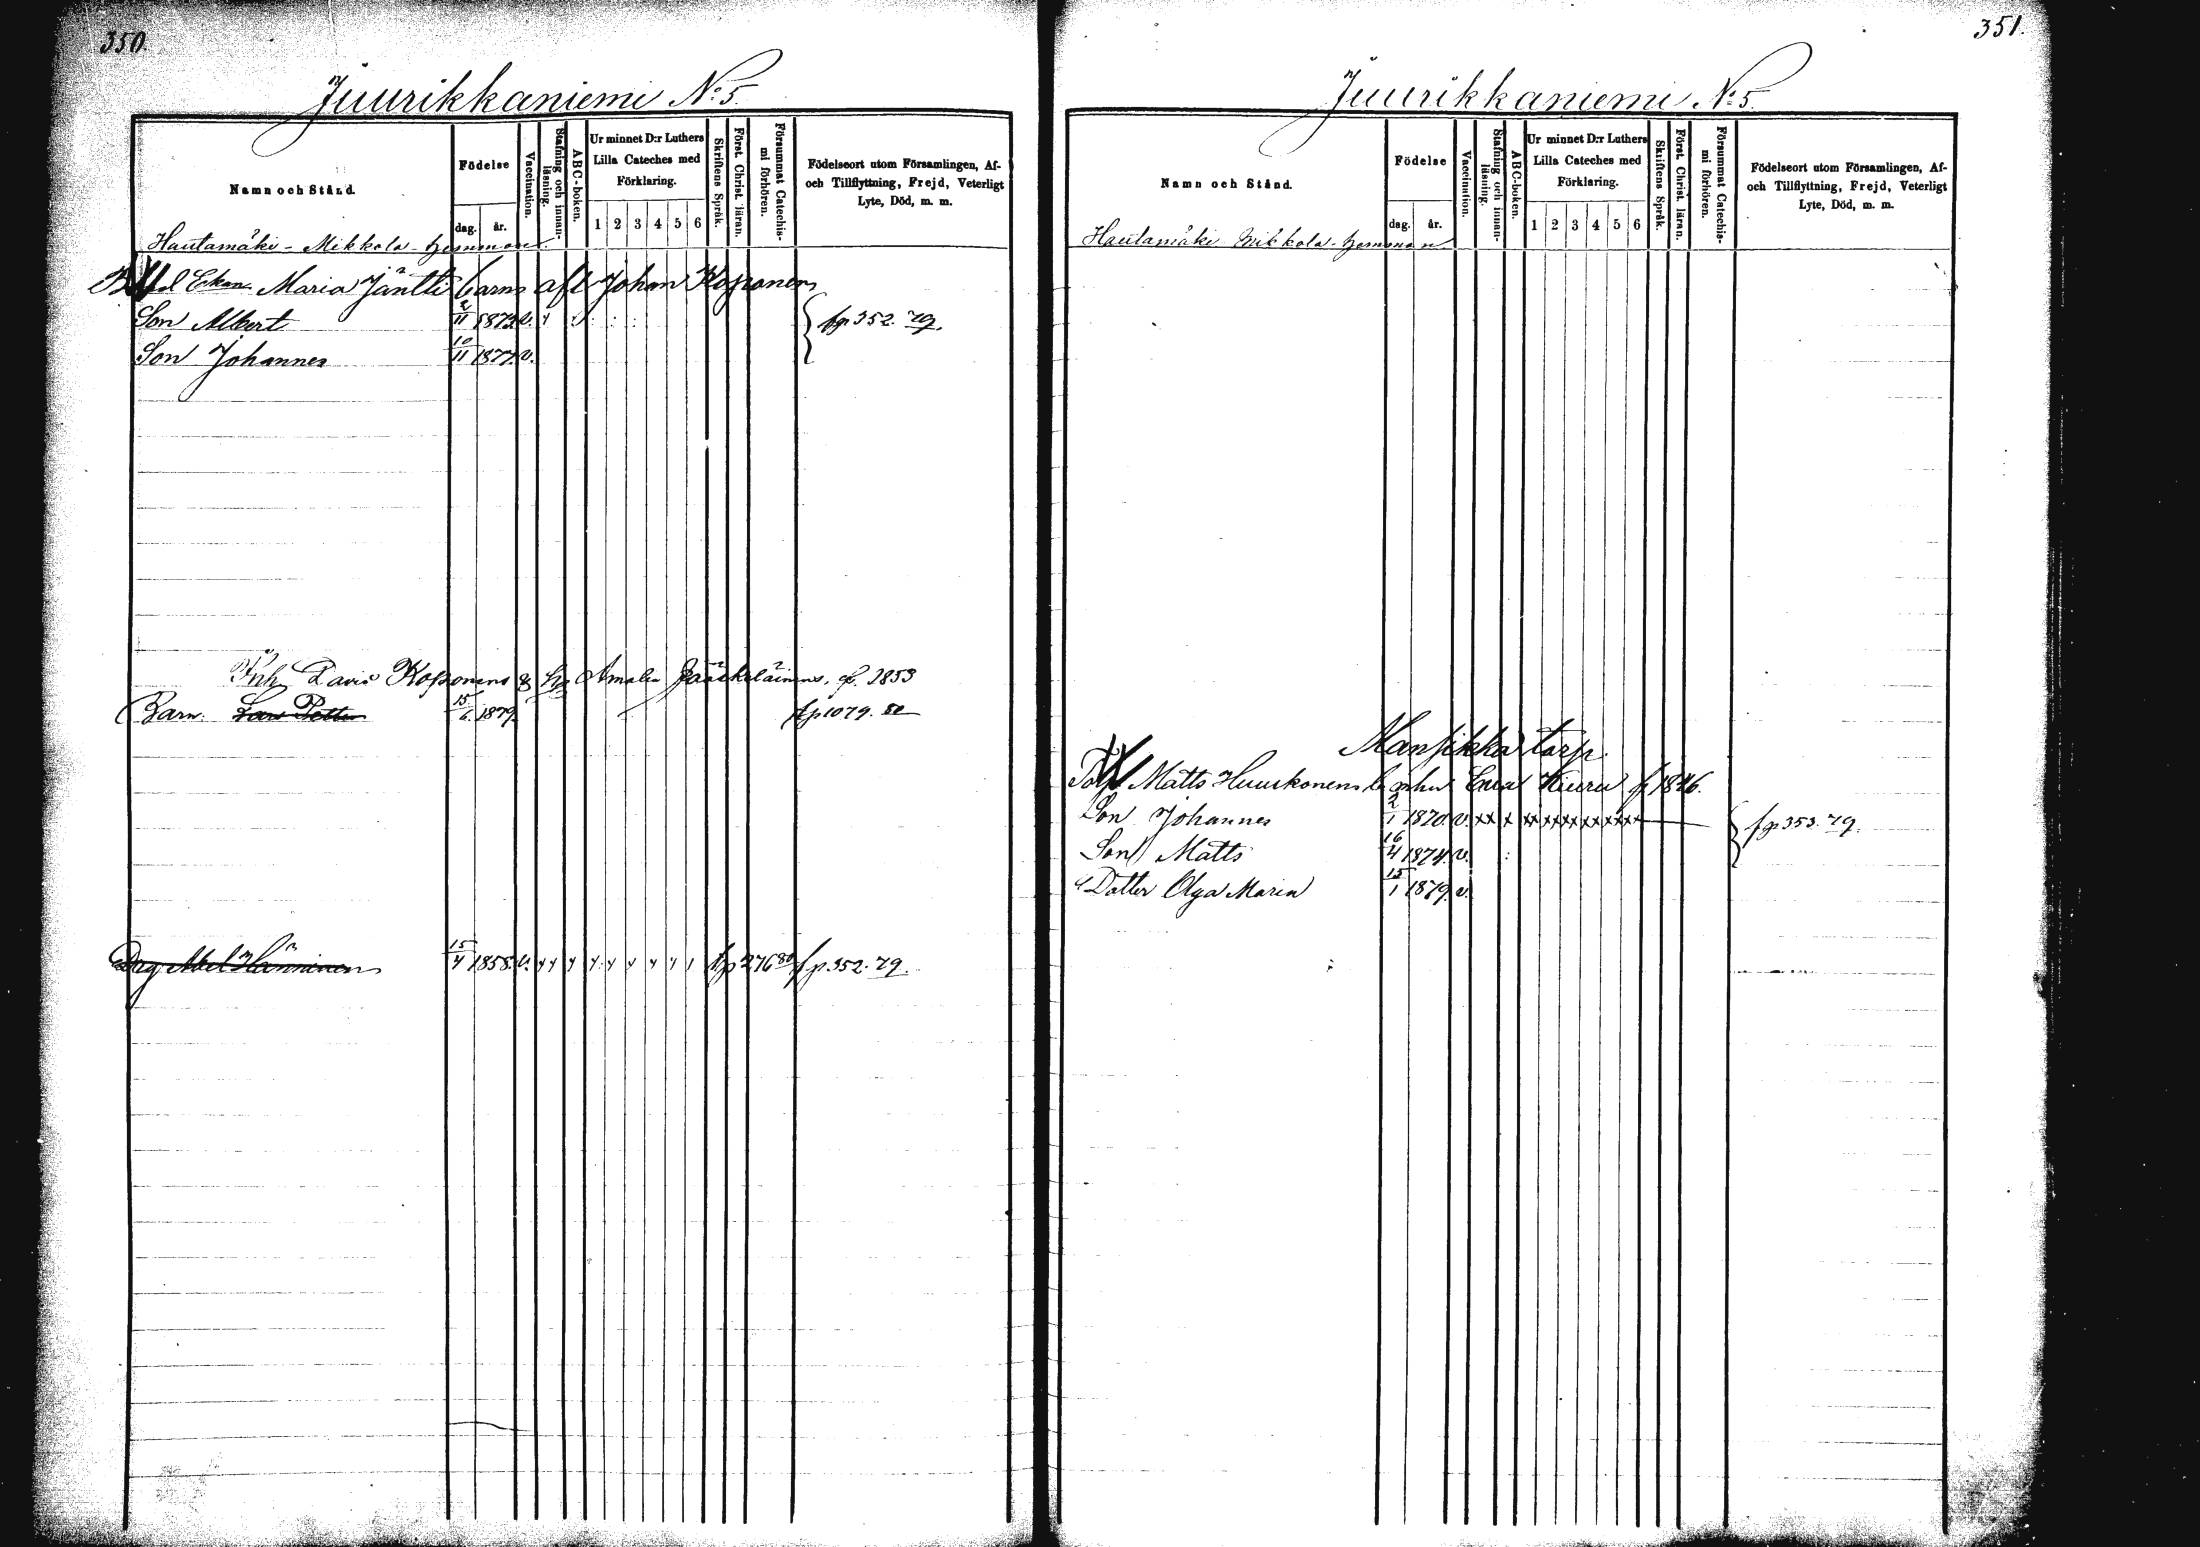 350.
Juurikkaniemi No 5.
Namn och Stånd.
Födelse
dag.
år.
Vaccination.
Stafning och innanläsning.
ABC-boken.
Ur minnet D:r Luthers Lilla Cateches med Förklaring.
1 2 3 4 5 6
Skriftens Språk.
Först. Christ. läran.
Försummat Catechismi förhören.
Födelseort utom Församlingen, Af- och Tillflyttning, Frejd, Veterligt Lyte, Död, m. m.
Hautamäki - Mikkola - hemman.
Enkan Maria Jäntti barn afl Johan Koponen
Son Albert 2/11 1873 v. fp 352. 79.
Son Johannes 10/11 1877 v.
Inh. David Koponens & Amalia Jääskeläinens, f. 1853
Barn. Lars Petter 15/6 1879 tp 1079. 80
Drg Abel Hänninen 15/4 1858 v. tp 276 80 fp. 352. 79.
351.
Juurikkaniemi No 5.
Namn och Stånd.
Födelse
dag.
år.
Vaccination.
Stafning och innanläsning.
ABC-boken.
Ur minnet D:r Luthers Lilla Cateches med Förklaring.
1 2 3 4 5 6
Skriftens Språk.
Först. Christ. läran.
Försummat Catechismi förhören.
Födelseort utom Församlingen, Af- och Tillflyttning, Frejd, Veterligt Lyte, Död, m. m.
Hautamäki Mikkola - hemman
Mansikka torp.
Matts Huuskonens Eva Kieru f 1846.
Son Johannes 2/1 1870. v. xx x xx xx xx xx xx xx fp 353. 79.
Son Matts 16/4 1874. v.
Dotter Olga Maria 15/1 1879. v.